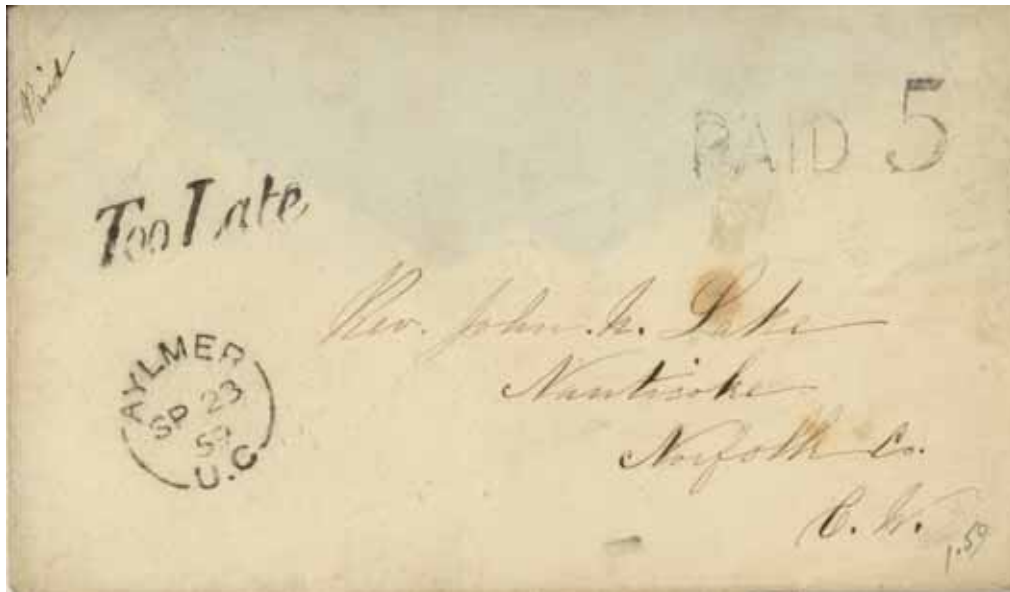 Paid
PAID 5
Too Late
Rev. John N. Lake
Nanticoke
Norfolk Co.
C. W.
AYLMER
SP 23
59
U.C.